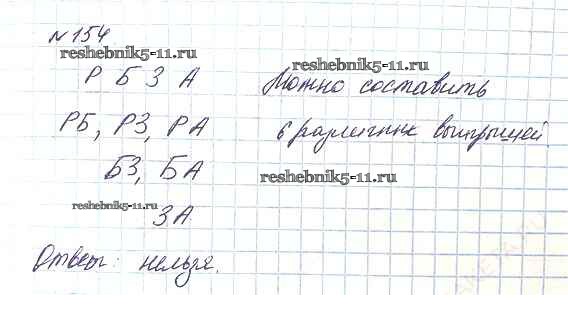 № 154
reshebnik5-11.ru
reshebnik5-11.ru
Р Б З А
Можно составить
РБ, РЗ, РА
6 различных выигрышей
БЗ, БА
reshebnik5-11.ru
reshebnik5-11.ru
ЗА
Ответ: нельзя.